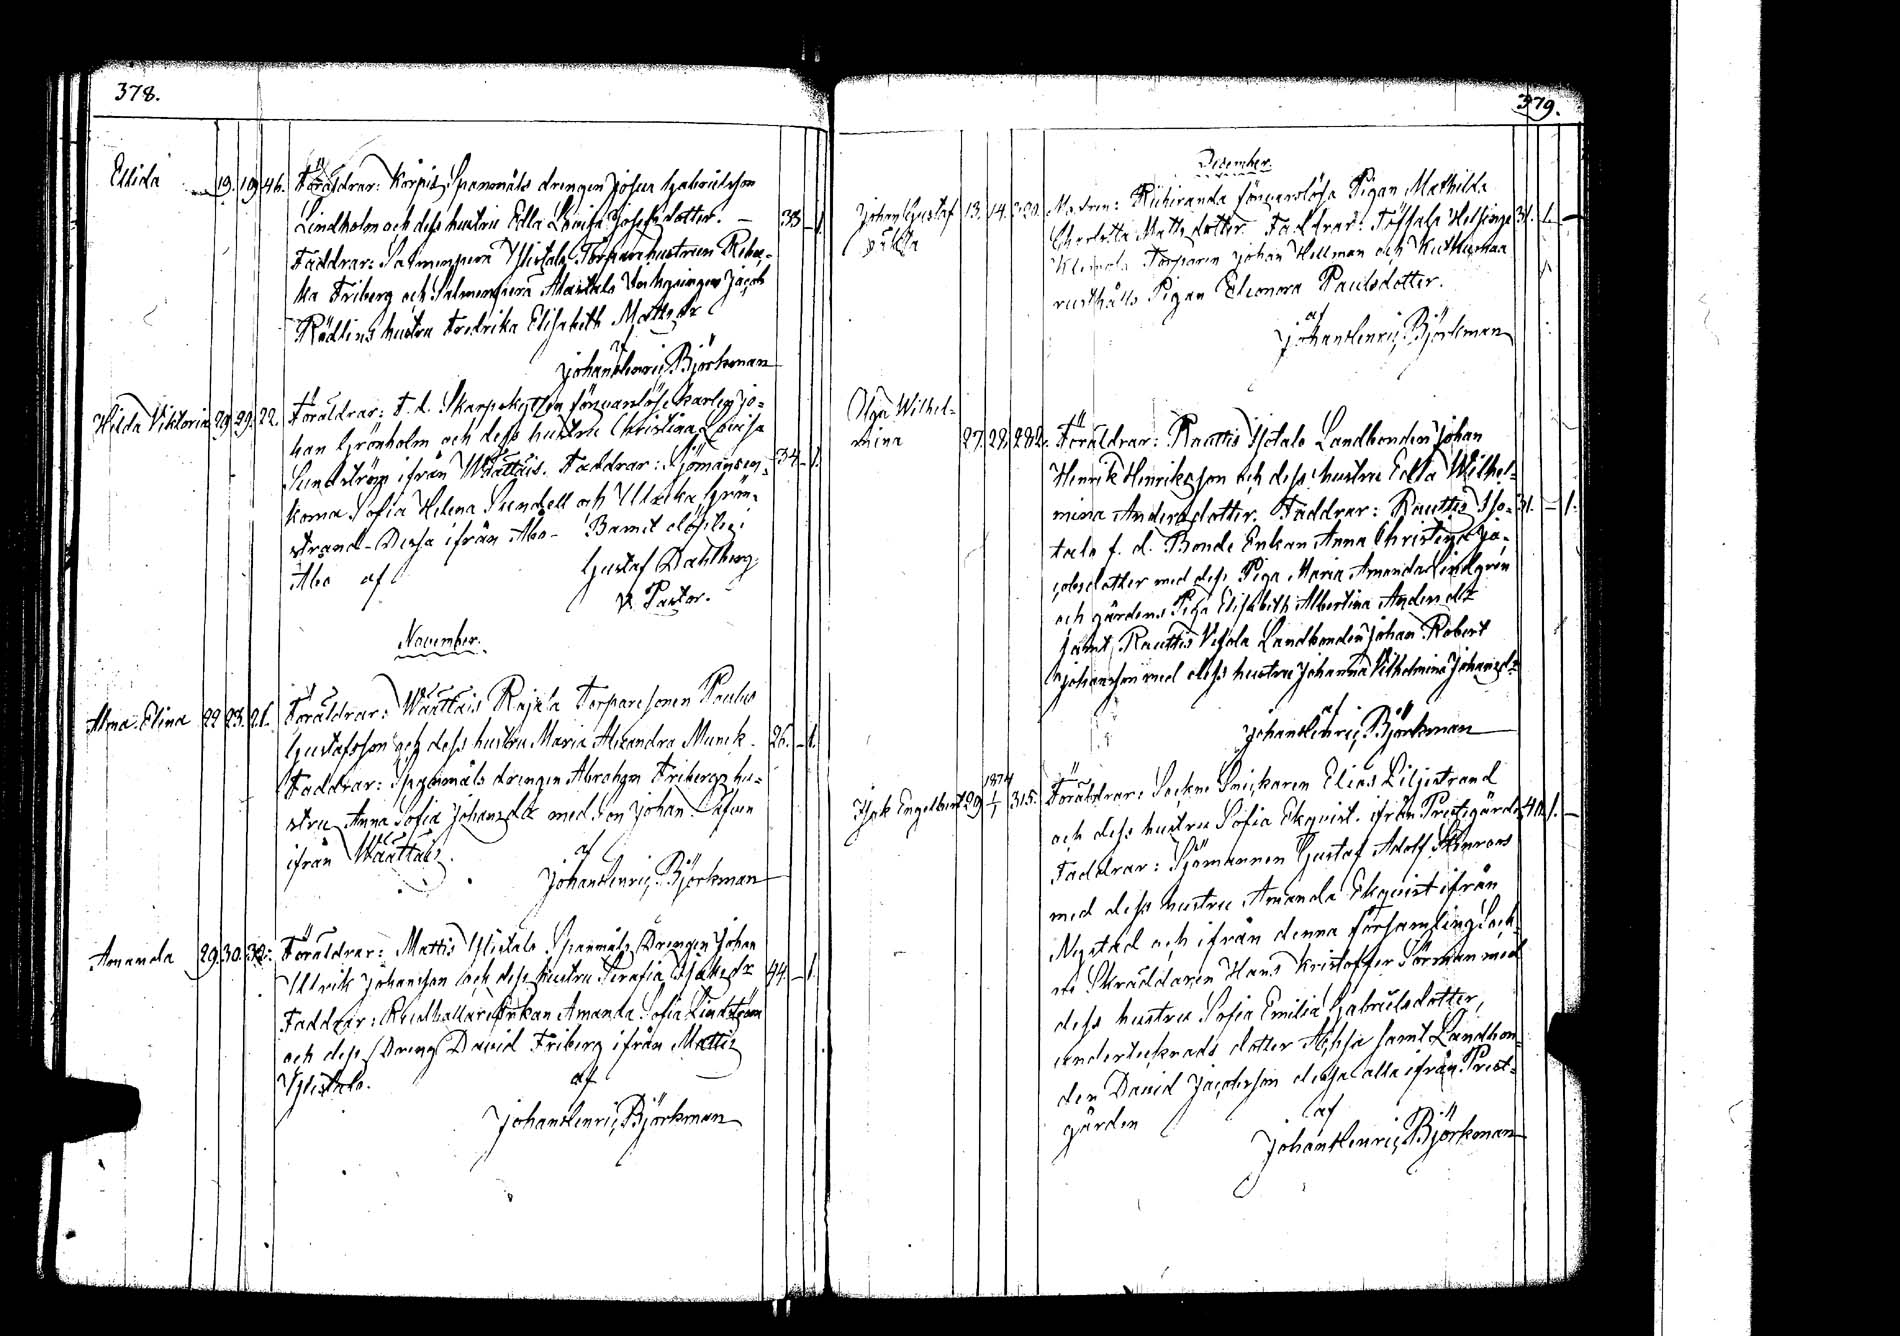 378.
Ellida 19. 19 46. Föräldrar: Korpis Spanmåls drengen Josua Gabrielsson
Lindholm och dess hustru Edla Lovisa Josefsdotter. — 38 — 1.
Faddrar: Salmenperä Ylistalo Torparehustrun Rebec-
ka Friberg och Salmenperä Alastalo Inhysingen Jacob
Rödlins hustru Fredrika Elisabeth Mattsdr
af
Johan Henric Björkman
Hilda Viktoria 29 29. 22. Föräldrar: F. d. Skarpskytten Karlen Jo-
han Grönholm och dess hustru Christina Lovisa
Sundström ifrån Wäättäis. Faddrar: Sjömansen- 34 — 1.
korna Sofia Helena Sundell och Ulrika Grön-
strand – Dessa ifrån Åbo – Barnet döptes i
Åbo af Gustaf Dahlberg
v. Pastor.
November.
Alma Elina 22 23. 21. Föräldrar: Wäättäis Rajala Torparesonen Paulus
Gustafsson och dess hustru Maria Alexandra Munck. 26. — 1.
Faddrar: Spanmåls drengen Abraham Fribergs hu-
stru Anna Sofia Johansdr med son Johan
ifrån Wäättäis. af
Johan Henric Björkman
Amanda 29. 30. 32. Föräldrar: Mattis Ylistalo Spanmåls Drengen Johan
Ulrik Johansson och dess hustru Serafia 44 — 1.
Faddrar: Enkan Amanda Sofia Lindström
och dess Dreng David Friberg ifrån Mattis
Ylistalo. af
Johan Henric Björkman
379.
December.
Johan Gustaf 13. 14. Modren: Riihiranda försvarslösa Pigan Mathilda
oäkta Charlotta Mattsdotter. Faddrar: Helsinge 31. 1. —
Torparen Johan Hellman och
rusthålls Pigan Eleonora Paulsdotter.
af
Johan Henric Björkman
Olga Wilhel-
mina 27. 28. 282. Föräldrar: Rauttis Isotalo Landbonden Johan
Henrik Henriksson och dess hustru Edla Wilhel-
mina Andersdotter. Faddrar: Rauttis Iso- 31. — 1.
talo f. d. Bonde Enkan Anna Christina Ja-
cobsdotter med dess Piga Maria Amanda Lindgren
och gårdens Piga Elisabeth Albertina Andersdr
samt Rauttis Vesola Landbonden Johan Robert
Johansson med dess hustru Johanna Vilhelmina Johansdr
af
Johan Henric Björkman
1874
Isak Engelbert 29 1/1 315. Föräldrar: Sockne Snickaren Elias Liljestrand
och dess hustru Sofia Ekqvist. ifrån Prestegården. 40. 1. —
Faddrar: Sjömannen Gustaf Adolf Stenroos
med dess hustru Amanda Ekqvist ifrån
Nystad och ifrån denna församling Sock-
ne Skräddaren Hans Kristoffer Sörman med
dess hustru Sofia Emilia Gabrielsdotter,
undertecknads dotter Achsa samt Landbon-
den David Jacobsson dessa alla ifrån Prest-
gården af
Johan Henric Björkman